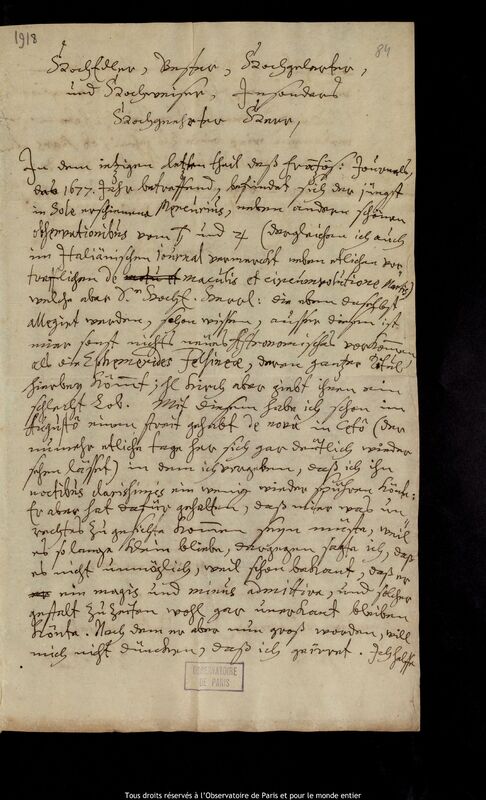 1918
84
HochEdler, Vester, Hochgelerter,
und Hochweiser, Insonders
Hochgeehrter Herr,
In dem ietzigen letzten theil deß Frantzös: Journals,
das 1677. Jahr betreffend, befindet sich der jüngst
in Sole erschienene Mercurius, neben andern schönen
observationibus vom ♄ und ♃ (dergleichen ich auch
im Italiänischen Journal vermerckt neben etlichen vor-
trefflichen de maculis et circumvolutione Martis)
welche aber die eben daselbst
allegirt werden, schon wissen, ausser diesem ist
mier sonst nichts neues Astronomisches vorkommen
als die Ephemerides Felsineæ, deren gantzer Titul
hierbey kömmt; H. Kirch aber giebt ihnen ein
schlecht Lob. Mit diesem habe ich schon im
Augusto einen streit gehabt de novâ in Cetô (der
nunmehr etliche tage her sich gar deutlich wieder
sehen lässet) in dem ich vorgegeben, daß ich ihn
noctibus clarissimis ein wenig wieder spühren könte:
Er aber hat dafür gehalten, daß mier was un-
rechtes zu gesichte kommen seyn müste, weil
es so lange klein bliebe, dargegen sagte ich, daß
es nicht unmöglich, weil schon bekant, daß er
ein magis und minus admittire, und solcher
gestalt zu zeiten wohl gar unerkant bleiben
könte. Nach dem er aber nun groß worden, will
mich nicht düncken, daß ich geirret. Ich hoffe
OBSERVATOIRE
DE PARIS
Tous droits réservés à l'Observatoire de Paris et pour le monde entier